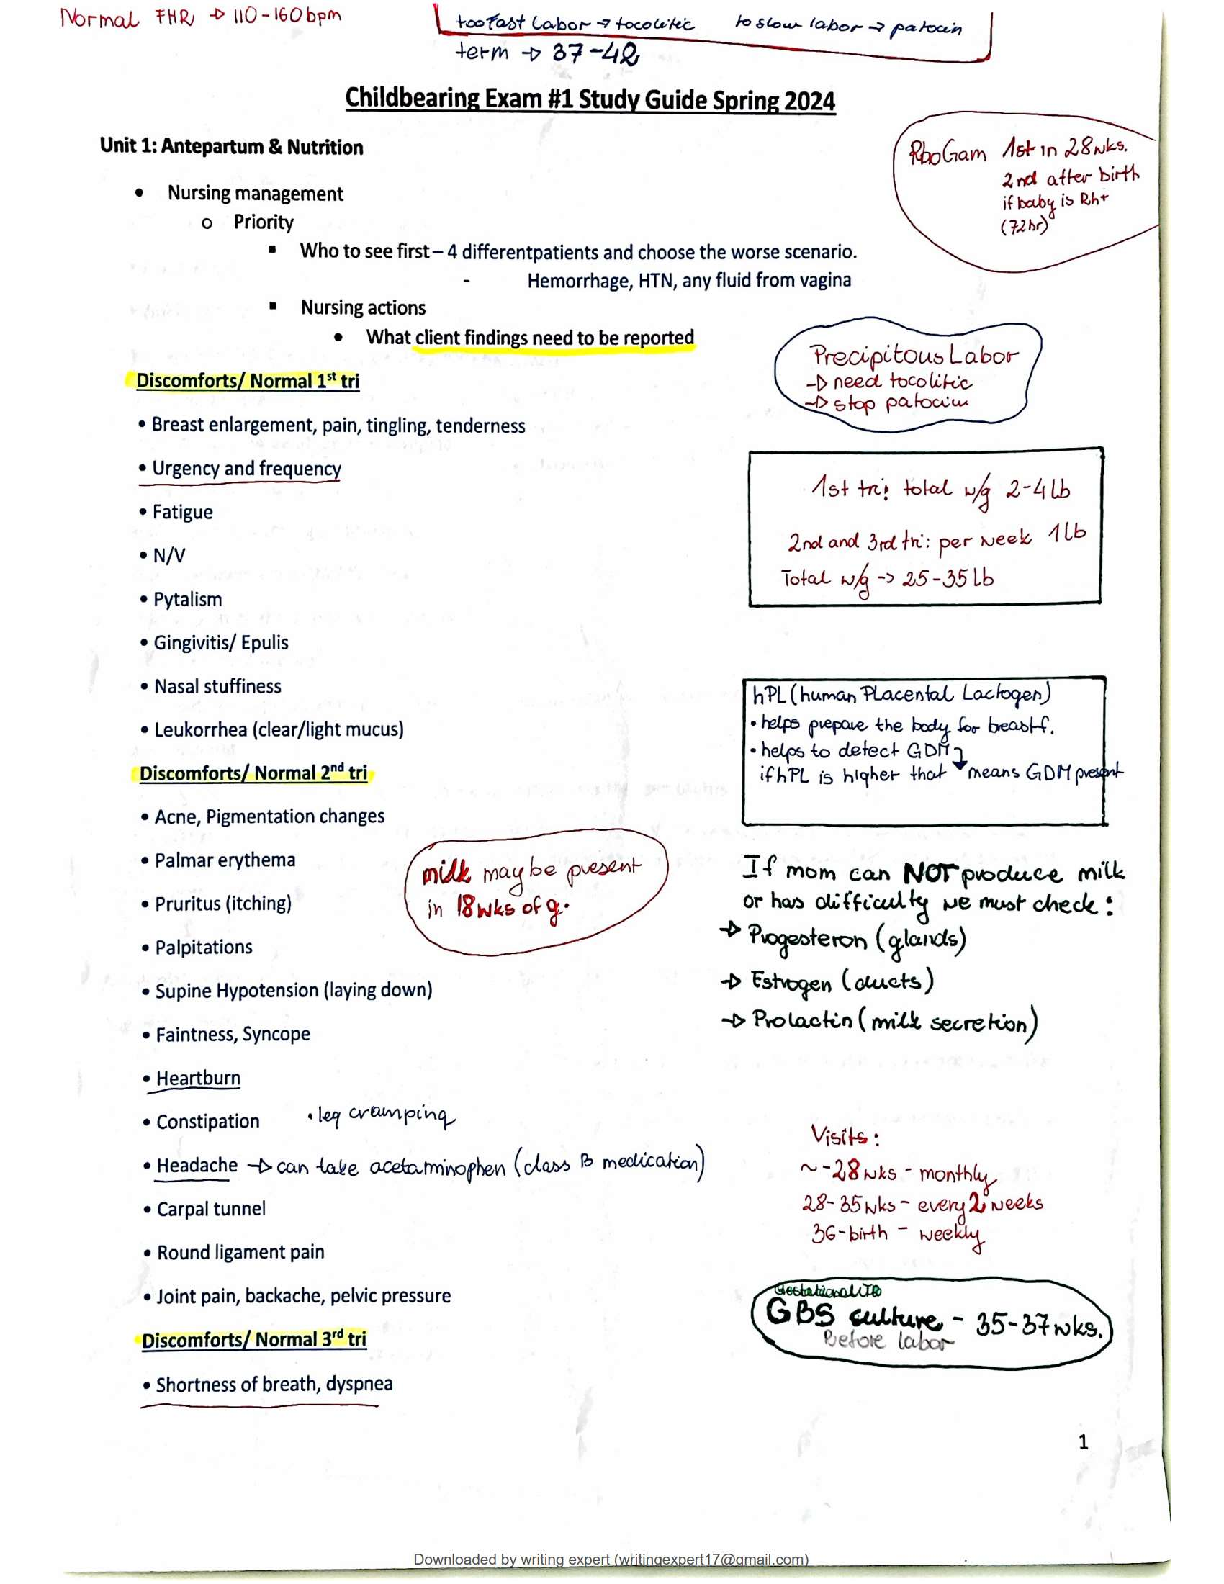 Normal FHR → 110-160bpm
too fast Labor → tocolitic to slow labor → patocin
term → 37-42
Childbearing Exam #1 Study Guide Spring 2024
Unit 1: Antepartum & Nutrition
RhoGam 1st in 28wks.
2nd after birth
if baby is Rh+
(72hr)
• Nursing management
o Priority
▪ Who to see first – 4 differentpatients and choose the worse scenario.
- Hemorrhage, HTN, any fluid from vagina
▪ Nursing actions
• What client findings need to be reported
Precipitous Labor
→ need tocolitic
→ stop patocin
Discomforts/ Normal 1st tri
• Breast enlargement, pain, tingling, tenderness
• Urgency and frequency
• Fatigue
• N/V
• Pytalism
• Gingivitis/ Epulis
• Nasal stuffiness
• Leukorrhea (clear/light mucus)
1st tri: total w/g 2-4 Lb
2nd and 3rd tri: per week 1 lb
Total w/g -> 25-35 Lb
hPL (human Placental Lactogen)
• helps prepare the body for breastf.
• helps to detect GDM
if hPL is higher that ↓ means GDM present
Discomforts/ Normal 2nd tri
• Acne, Pigmentation changes
• Palmar erythema
• Pruritus (itching)
• Palpitations
• Supine Hypotension (laying down)
• Faintness, Syncope
• Heartburn
• Constipation • leg cramping
• Headache → can take acetaminophen (class B medication)
• Carpal tunnel
• Round ligament pain
• Joint pain, backache, pelvic pressure
milk may be present
in 18wks of g.
If mom can NOT produce milk
or has difficulty we must check:
→ Progesteron (glands)
→ Estrogen (ducts)
→ Prolactin (milk secretion)
Visits:
~-28wks - monthly
28-35wks - every 2 weeks
36-birth - weekly
GBS culture - 35-37wks.
before labor
Discomforts/ Normal 3rd tri
• Shortness of breath, dyspnea
1
Downloaded by writing expert (writingexpert17@gmail.com)